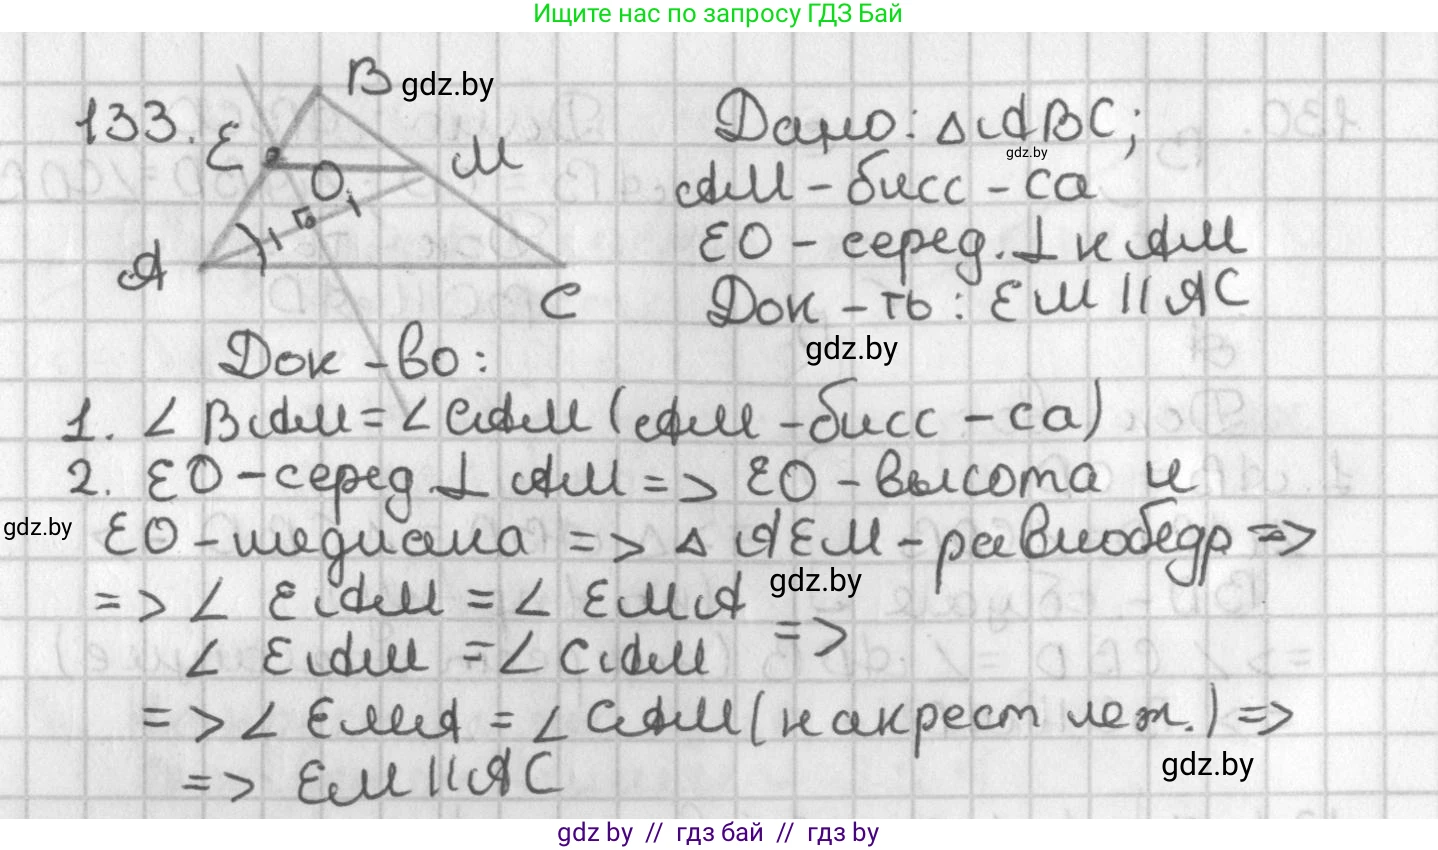 Ищите нас по запросу ГДЗ Бай
133.
B
gdz.by
E
M
O
A
C
Дано: △ABC;
gdz.by
AM - бисс - са
EO - серед. ⊥ к AM
Док - ть: EM || AC
gdz.by
Док - во:
1. ∠ BAM = ∠ CAM (AM - бисс - са)
2. EO - серед ⊥ AM => EO - высота и
gdz.by
EO - медиана => △ AEM - равнобедр =>
gdz.by
=> ∠ EAM = ∠ EMA
∠ EAM = ∠ CAM =>
=> ∠ EMA = ∠ CAM (накрест леж.) =>
gdz.by
=> EM || AC
gdz by // гдз бай // гдз by